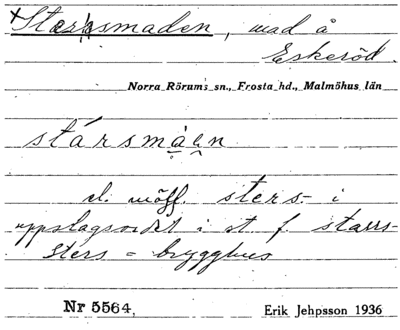 +Starrsmaden, mad å
Eskeröd.
Norra Rörums sn., Frosta hd., Malmöhus län
stársmån
el. möjl. sters- i
uppslagsordet i st f. starrs-
sters = brygghus
Nr 5564, Erik Jehpsson 1936